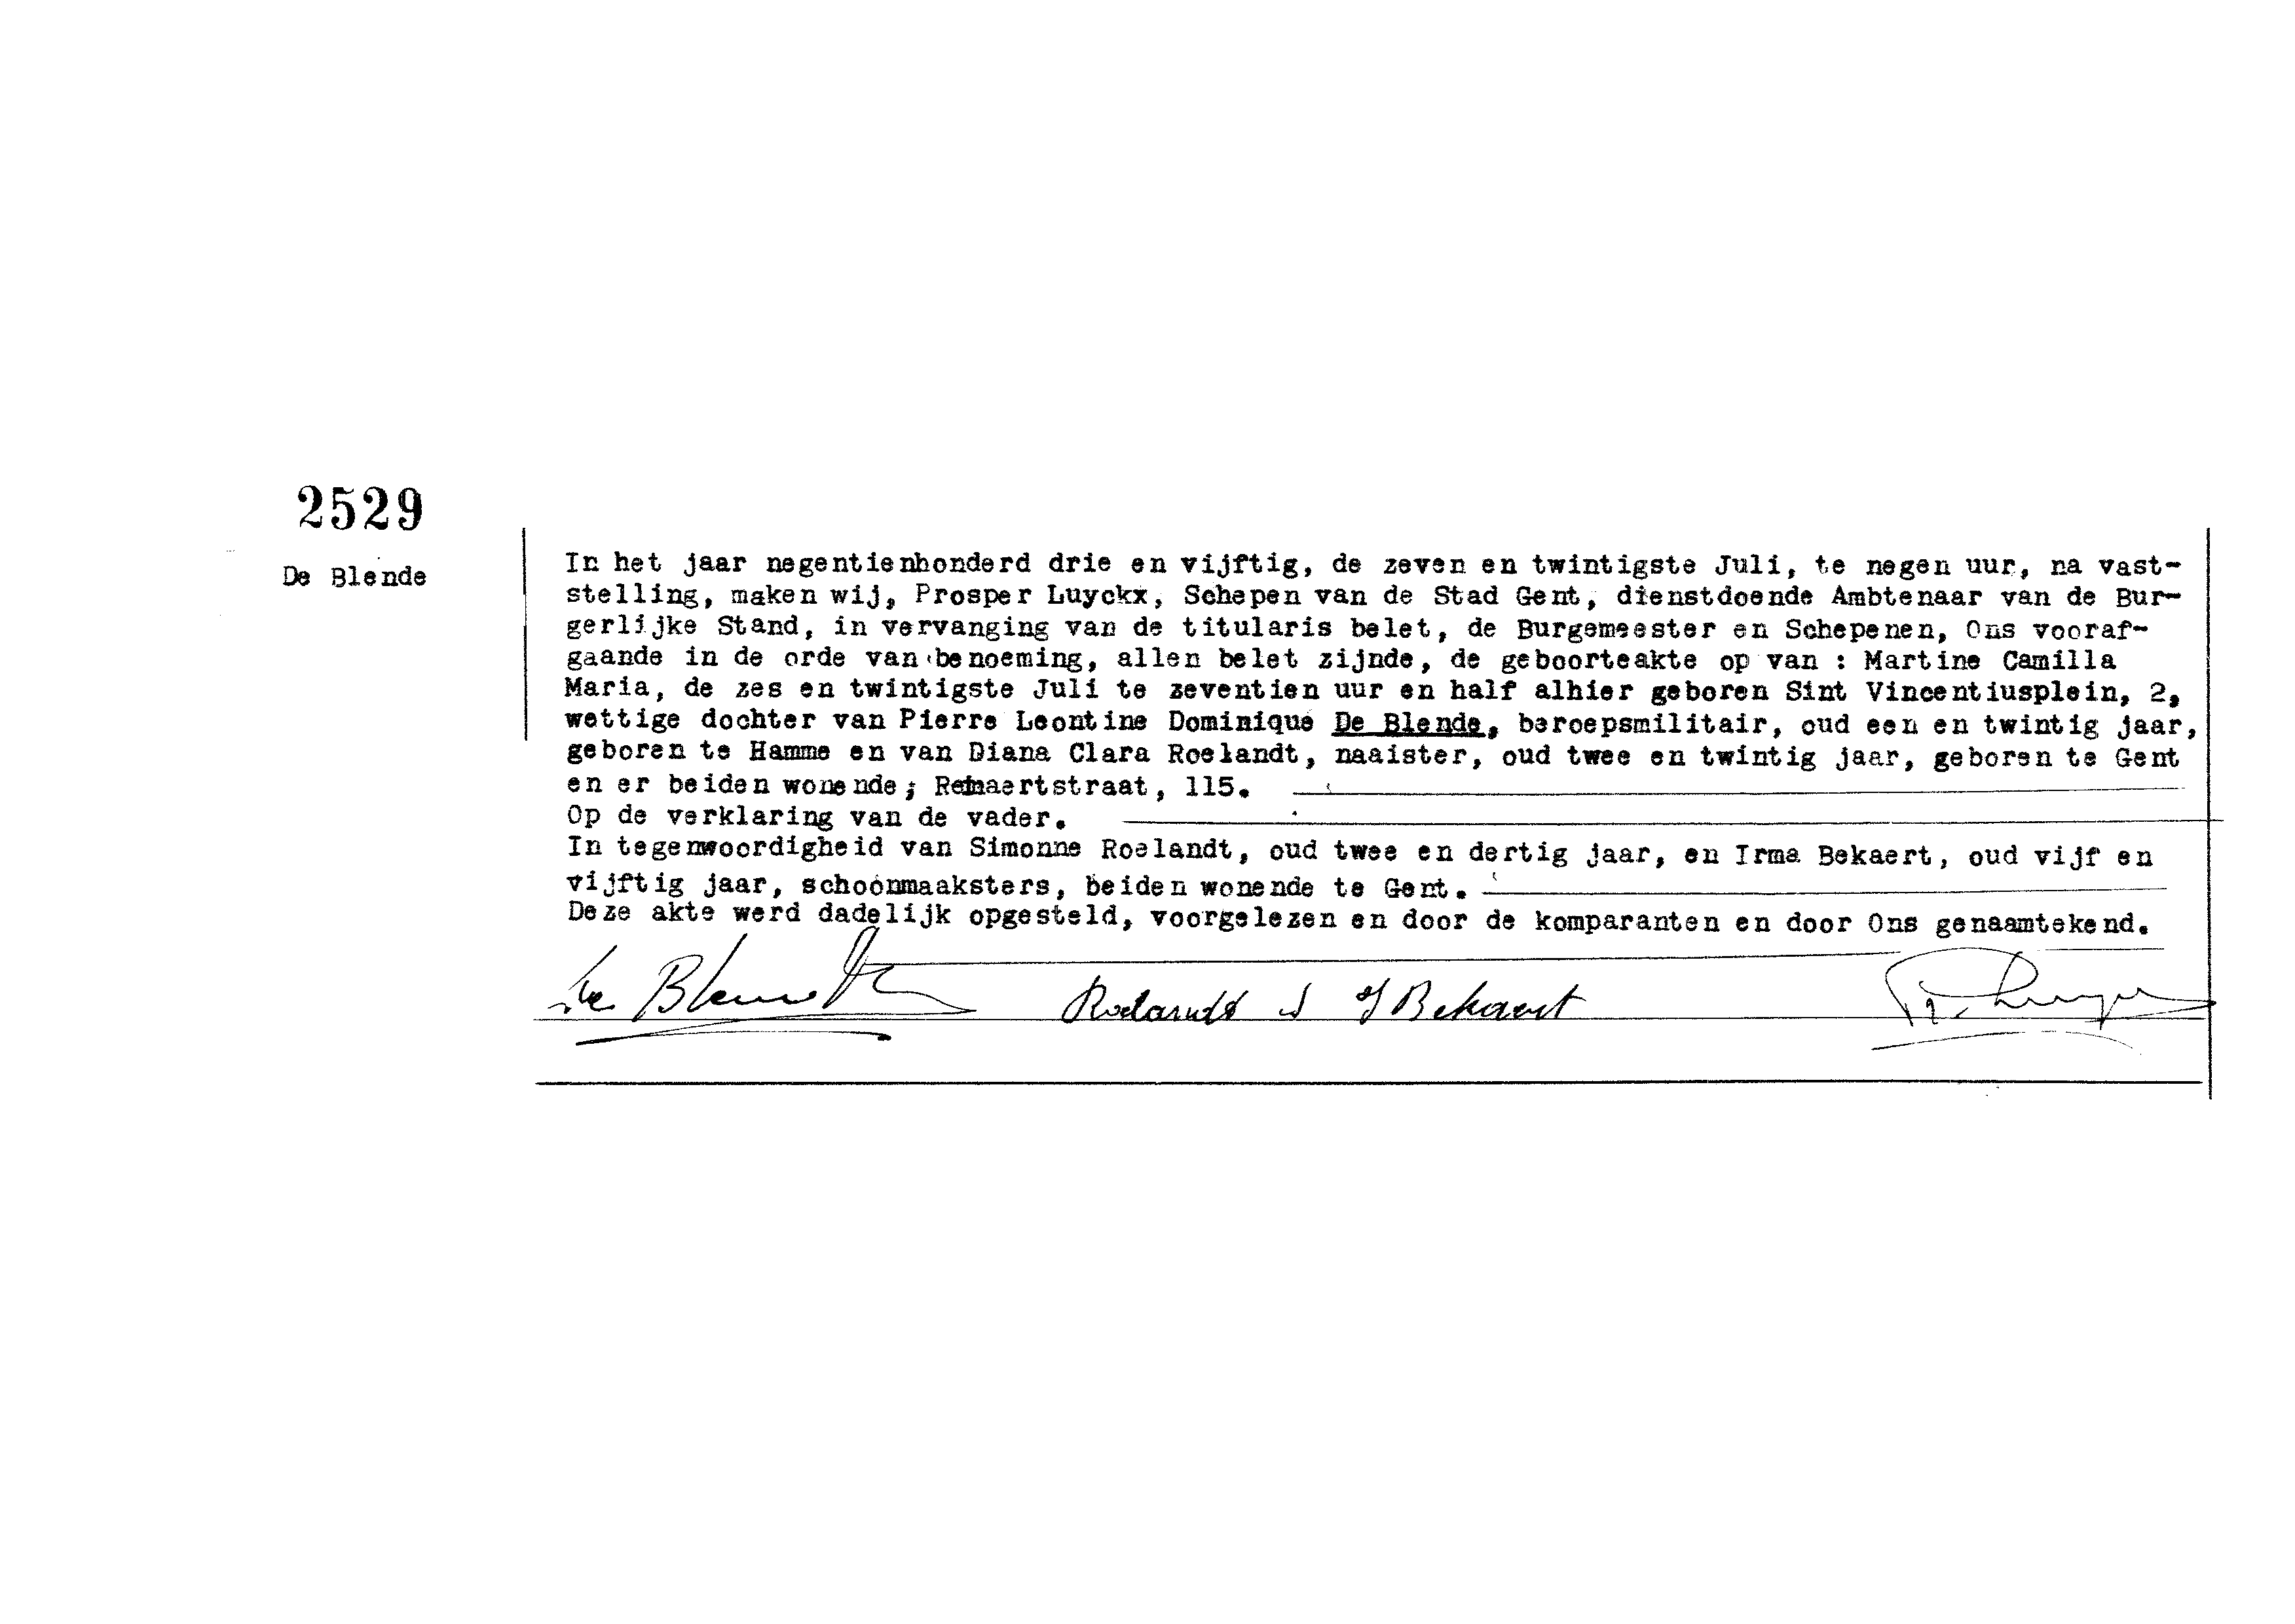 2529
De Blende
In het jaar negentienhonderd drie en vijftig, de zeven en twintigste Juli, te negen uur, na vast-
stelling, maken wij, Prosper Luyckx, Schepen van de Stad Gent, dienstdoende Ambtenaar van de Bur-
gerlijke Stand, in vervanging van de titularis belet, de Burgemeester en Schepenen, Ons vooraf-
gaande in de orde van benoeming, allen belet zijnde, de geboorteakte op van : Martine Camilla
Maria, de zes en twintigste Juli te zeventien uur en half alhier geboren Sint Vincentiusplein, 2,
wettige dochter van Pierre Leontine Dominique De Blende, beroepsmilitair, oud een en twintig jaar,
geboren te Hamme en van Diana Clara Roelandt, naaister, oud twee en twintig jaar, geboren te Gent
en er beiden wonende; Reinaertstraat, 115.
Op de verklaring van de vader.
In tegenwoordigheid van Simonne Roelandt, oud twee en dertig jaar, en Irma Bekaert, oud vijf en
vijftig jaar, schoonmaaksters, beiden wonende te Gent.
Deze akte werd dadelijk opgesteld, voorgelezen en door de komparanten en door Ons genaamtekend.
De Blende Roelandt S I Bekaert